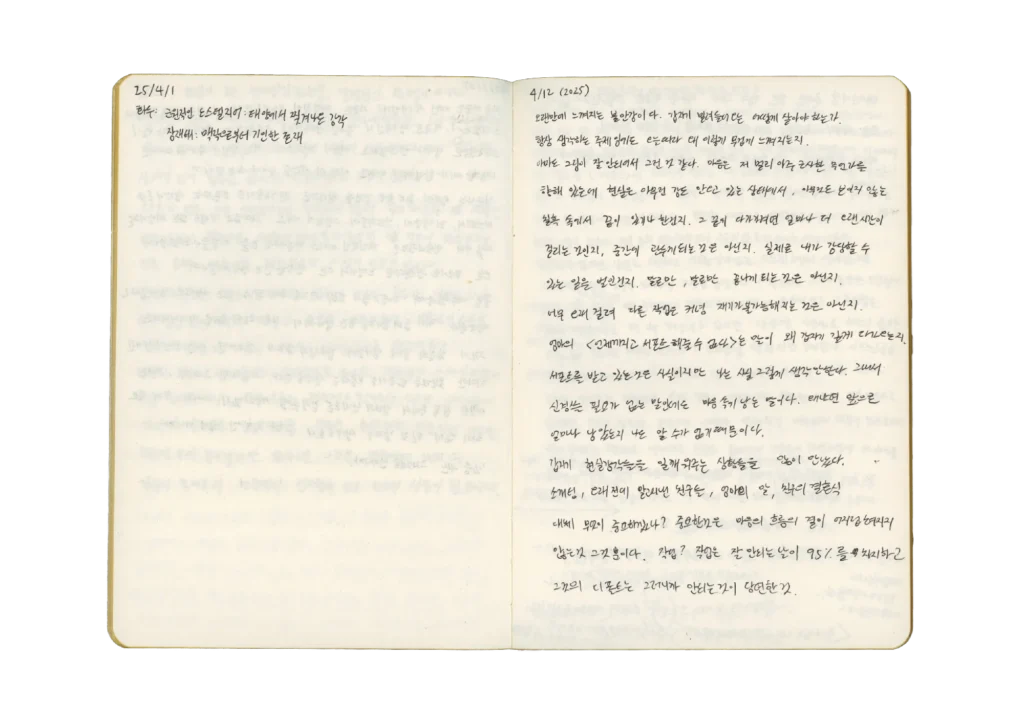 25/4/1
하루: 근원적인 노스텔지어: 태양에서 쫓겨나는 감각
4/12 (2025)
오랜만에 느껴지는 불안감이다. 갑자기 밀려들어 또는 어떻게 살아야 하는가.
항상 생각하는 주제 임에도 오늘따라 더 이렇게 무겁게 느껴지는지.
아마도 그림이 잘 안되어서 그런 것 같다. 마음은 저 멀리 아주 근사한 무언가를
향해 있는데 현실은 아무런 감도 안오고 있는 상태에서, 아무것도 보이지 않는
암흑 속에서 끝이 있기나 한건지. 그 끝에 다가가려면 얼마나 더 오랜 시간이
걸리는 것인지, 중간에 관두게 되는 것은 아닌지. 실제로 내가 감당할 수
있는 일을 벌인건지. 말로만, 말로만 끝나게 되는 것은 아닌지.
너무 오래 걸려 다른 작업은 커녕 재기가 불가능해지는 것은 아닌지.
엄마의 <언제까지고 서포트 해줄 수 없다>는 말이 왜 갑자기 깊게 다가오는지.
서포트를 받고 있는 것은 사실이지만 나는 사실 그렇게 생각 안한다. 그래서
신경쓰는 필요가 없는 말인데도 마음 속에 남는 말이다. 왜냐면 앞으로
얼마나 남았는지 나는 알 수가 없기 때문이다.
갑자기 현실감각들을 일깨워주는 상황들을 많이 만났다.
소개팅, 오래전에 알고지낸 친구들, 엄마의 말, 친구의 결혼식
대체 무엇이 중요하겠나? 중요한것은 마음의 흐름의 결이
않는것 그것 뿐이다. 작업? 작업은 잘 안되는 날이 95%를 차지하고
그것의 디폴트는 그러니까 안되는 것이 당연한 것.